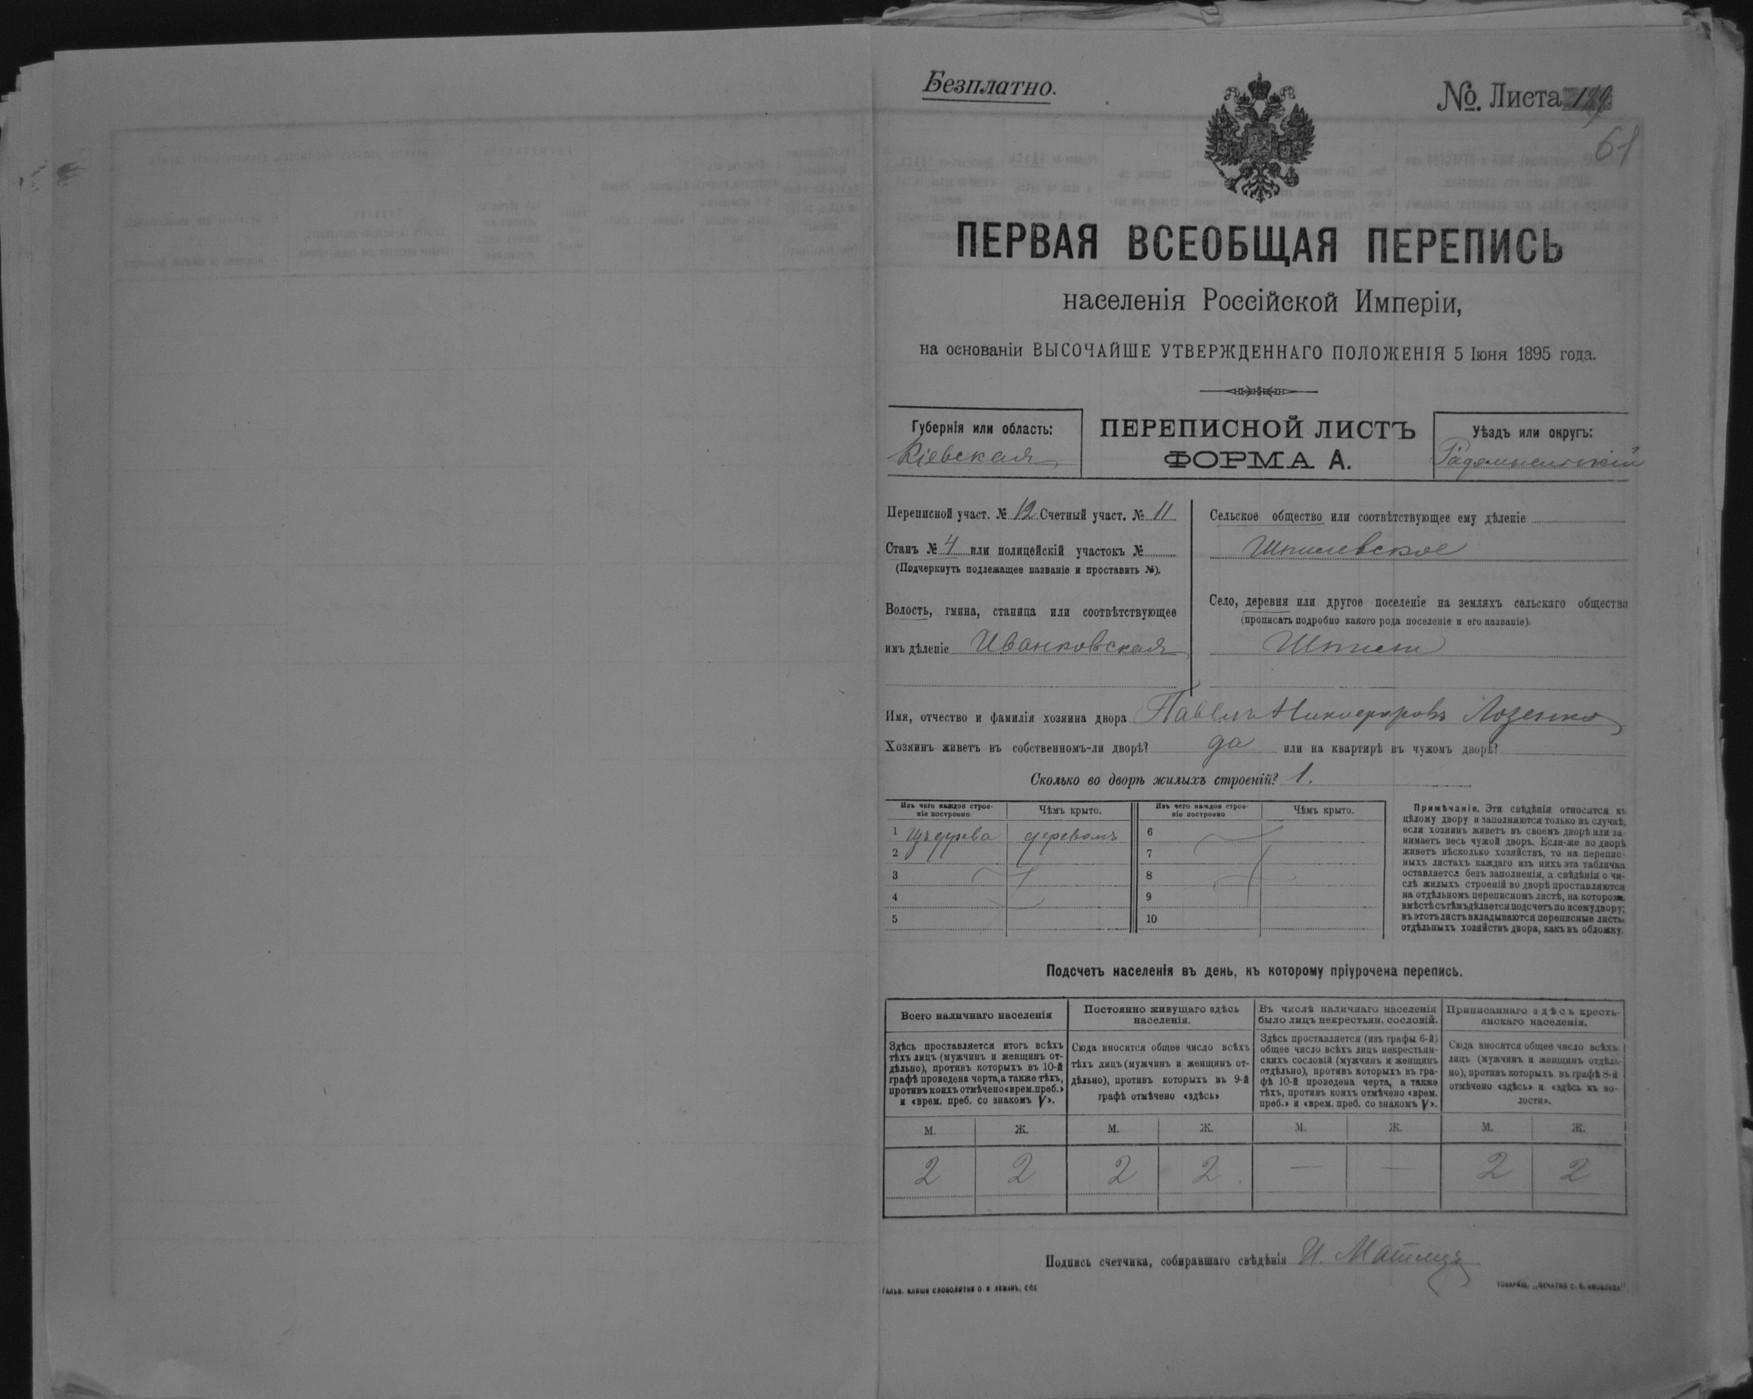 Безплатно.
№. Листа
61
ПЕРВАЯ ВСЕОБЩАЯ ПЕРЕПИСЬ
населенія Россійской Имперіи,
на основаніи ВЫСОЧАЙШЕ УТВЕРЖДЕННАГО ПОЛОЖЕНІЯ 5 Іюня 1895 года.
Губернія или область:
Кіевская
ПЕРЕПИСНОЙ ЛИСТЪ
ФОРМА А.
Уѣздъ или округъ:
Радомысльскій
Переписной участ. № 12 Счетный участ. № 11
Станъ № 4 или полицейскій участокъ №
(Подчеркнуть подлежащее названіе и проставить №).
Волость, гмина, станица или соотвѣтствующее
имъ дѣленіе Иванковская
Сельское общество или соотвѣтствующее ему дѣленіе
Шпилевское
Село, деревня или другое поселеніе на земляхъ сельскаго общества
(прописать подробно какого рода поселеніе и его названіе)
Шпили
Имя, отчество и фамилія хозяина двора Павелъ Никифоровъ Лозенко
Хозяинъ живетъ въ собственномъ-ли дворѣ? да или на квартирѣ въ чужомъ дворѣ?
Сколько во дворѣ жилыхъ строеній? 1.
Изъ чего каждое строе-
ніе построено
Чѣмъ крыто.
Изъ чего каждое строе-
ніе построено
Чѣмъ крыто.
1 Изъ дерева деревомъ
2
3
4
5
6
7
8
9
10
Примѣчаніе. Эти свѣдѣнія относятся къ
цѣлому двору и заполняются только въ случаѣ,
если хозяинъ живетъ въ своемъ дворѣ или за-
нимаетъ весь чужой дворъ. Если-же во дворѣ
живетъ нѣсколько хозяйствъ, то на перепис-
ныхъ листахъ каждаго изъ нихъ эта табличка
оставляется безъ заполненія, а свѣдѣнія о чи-
слѣ жилыхъ строеній во дворѣ проставляются
на отдѣльномъ переписномъ листѣ, на которомъ
вмѣстѣ съ тѣмъ дѣлается подсчетъ по всему двору;
въ этотъ листъ вкладываются переписные листы
отдѣльныхъ хозяйствъ двора, какъ въ обложку.
Подсчетъ населенія въ день, къ которому пріурочена перепись.
Всего наличнаго населенія
Здѣсь проставляется итогъ всѣхъ
тѣхъ лицъ (мужчинъ и женщинъ от-
дѣльно), противъ которыхъ въ 10-й
графѣ проведена черта, а также тѣхъ,
противъ коихъ отмѣчено «врем. преб.»
и «врем. преб. со знакомъ V».
Постоянно живущаго здѣсь
населенія.
Сюда вносится общее число всѣхъ
тѣхъ лицъ (мужчинъ и женщинъ от-
дѣльно), противъ которыхъ въ 9-й
графѣ отмѣчено «здѣсь»
Въ числѣ наличнаго населенія
было лицъ некрестьян. сословій.
Здѣсь проставляется (изъ графы 6-й)
общее число всѣхъ лицъ некрестьян-
скихъ сословій (мужчинъ и женщинъ
отдѣльно), противъ которыхъ въ гра-
фѣ 10-й проведена черта, а также
тѣхъ, противъ коихъ отмѣчено «врем.
преб.» и «врем. преб. со знакомъ V».
Приписаннаго здѣсь кресть-
янскаго населенія.
Сюда вносится общее число всѣхъ
лицъ (мужчинъ и женщинъ отдѣль-
но), противъ которыхъ въ графѣ 8-й
отмѣчено «здѣсь» и «здѣсь къ во-
лости».
М. Ж. М. Ж. М. Ж. М. Ж.
2 2 2 2 — — 2 2
Подпись счетчика, собиравшаго свѣдѣнія И.